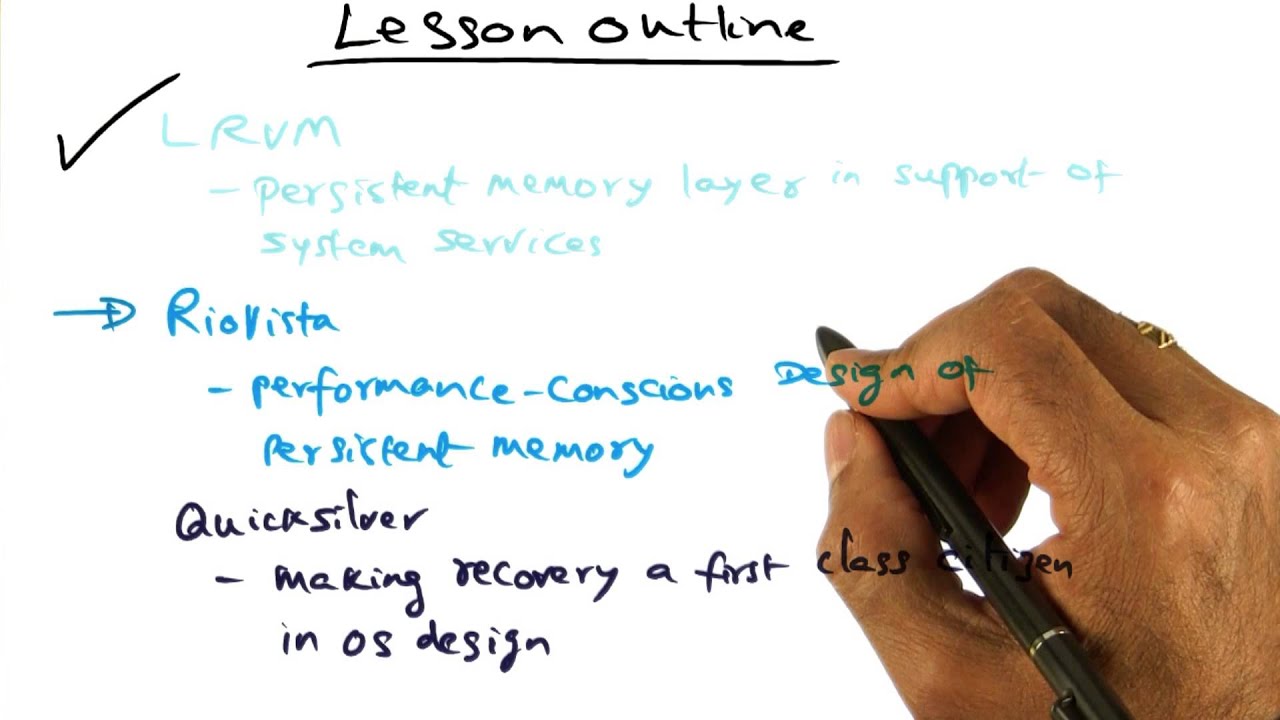 Lesson outline
LRVM
- persistent memory layer in support of
system services
→ RioVista
- performance-conscious Design of
persistent memory
Quicksilver
- making recovery a first class citizen
in OS design